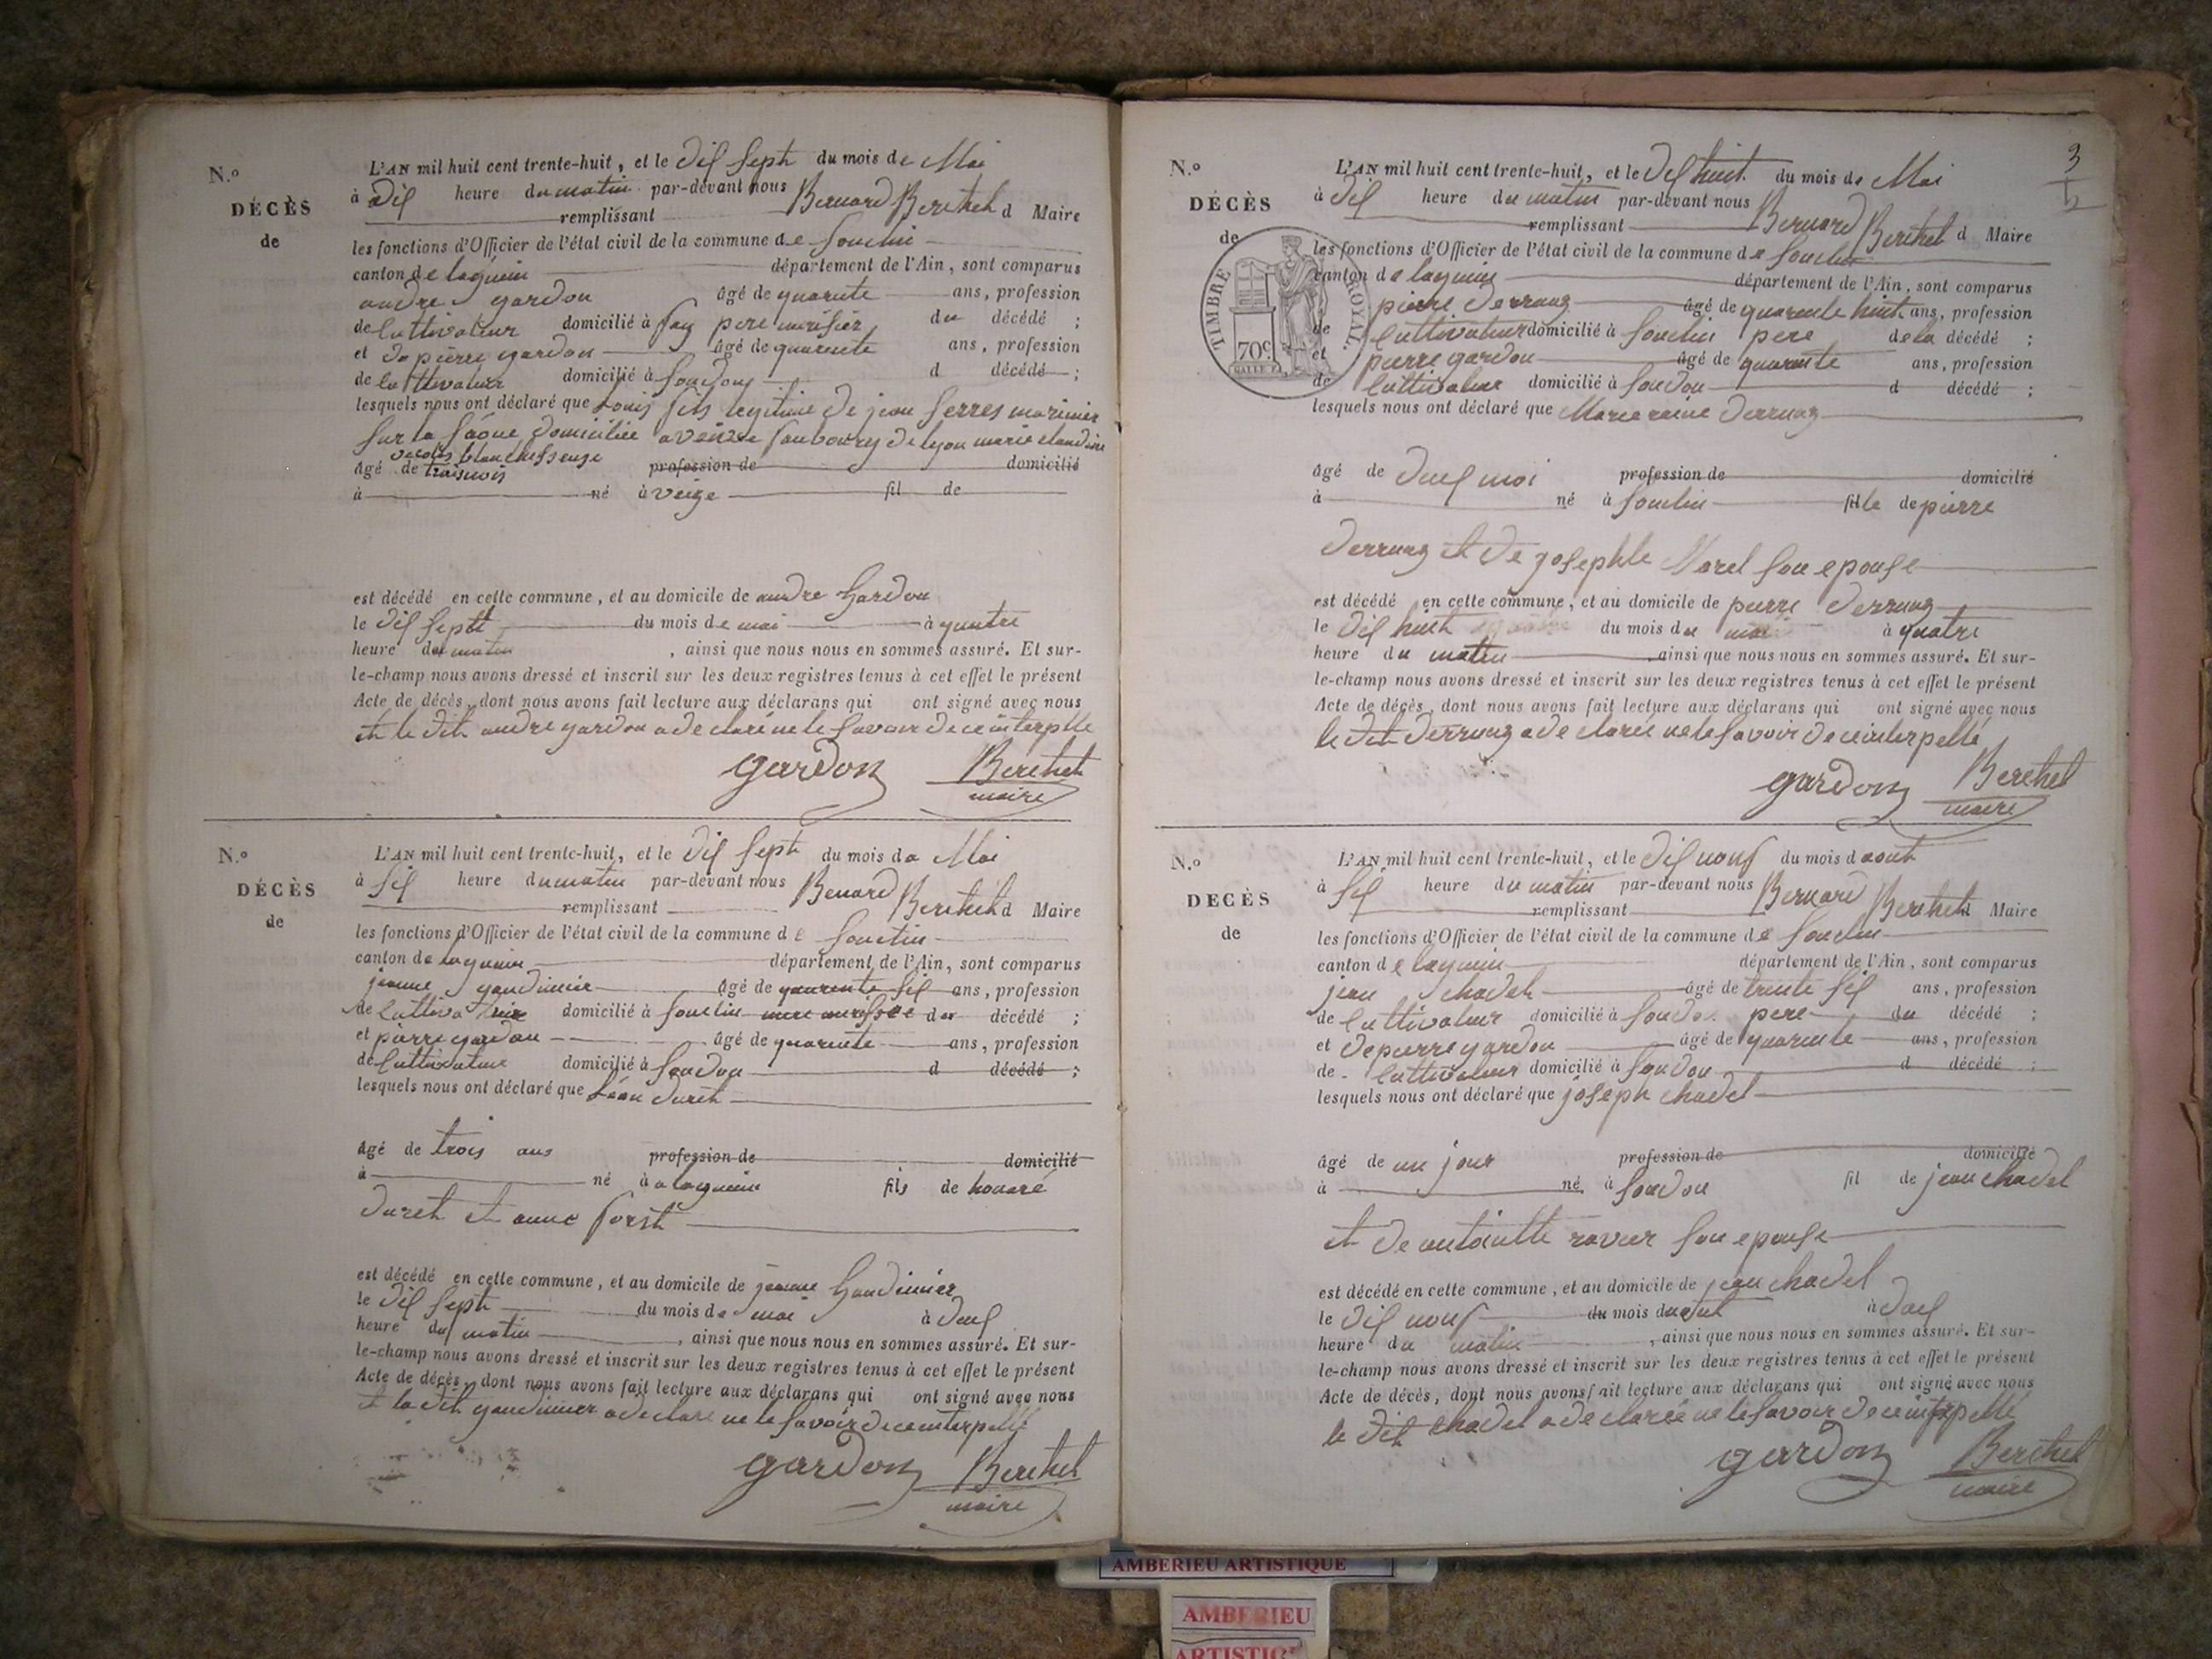 N.o
DÉCÈS
de
L'AN mil huit cent trente-huit, et le dix sept du mois de Mai
à dix heure du matin par-devant nous Bernard Berthet d Maire
remplissant
les fonctions d'Officier de l'état civil de la commune de Souclin
canton de lagnieu département de l'Ain, sont comparus
andre gardon âgé de quarente ans, profession
de cultivateur domicilié à fay pere nourisier du décédé ;
et de pierre gardon âgé de quarente ans, profession
de cultivateur domicilié à Soudon d décédé ;
lesquels nous ont déclaré que Louis fils legitime de jean ferres marinier
sur la Saone domicilié a veise faubourg de lyon marie claudine
blanchisseuse
âgé de trois mois profession de domicilié
à né à veise fil de
est décédé en cette commune, et au domicile de andre Gardon
le dix sept du mois de mai à quatre
heure du matin , ainsi que nous nous en sommes assuré. Et sur-
le-champ nous avons dressé et inscrit sur les deux registres tenus à cet effet le présent
Acte de décès, dont nous avons fait lecture aux déclarans qui ont signé avec nous
et le dit andre gardon a declaré ne le savoir de ce interpelle
gardon Berthet
maire
N.o
DÉCÈS
de
L'AN mil huit cent trente-huit, et le dix sept du mois de Mai
à six heure du matin par-devant nous Benard Berthet d Maire
remplissant
les fonctions d'Officier de l'état civil de la commune de Souclin
canton de lagnieu département de l'Ain, sont comparus
jeanne gandinier âgé de quarente six ans, profession
de domicilié à Souclin mere nourisse du décédé ;
et pierre gardon âgé de quarente ans, profession
de cultivateur domicilié à Soudon d décédé ;
lesquels nous ont déclaré que Léon duret
âgé de trois ans profession de domicilié
à né à lagnieu fils de honoré
duret et anne forst
est décédé en cette commune, et au domicile de jeanne Gandinier
le dix sept du mois de mai à deux
heure du matin , ainsi que nous nous en sommes assuré. Et sur-
le-champ nous avons dressé et inscrit sur les deux registres tenus à cet effet le présent
Acte de décès, dont nous avons fait lecture aux déclarans qui ont signé avec nous
et la dit gandinier a declare ne le savoir de ce interpelle
gardon Berthet
maire
3
N.o
DÉCÈS
de
TIMBRE ROYAL.
70c
L'AN mil huit cent trente-huit, et le dix huit du mois de Mai
à dix heure du matin par-devant nous Bernard Berthet d Maire
remplissant
les fonctions d'Officier de l'état civil de la commune de Souclin
canton de lagnieu département de l'Ain, sont comparus
pierre derruaz âgé de quarente huit ans, profession
de cultivateur domicilié à Souclin pere de la décédé ;
et pierre gardon âgé de quarente ans, profession
de cultivateur domicilié à Soudon d décédé ;
lesquels nous ont déclaré que Marie reine derruaz
âgé de deux moi profession de domicilié
à né à Souclin fille de pierre
derruaz et de josephte Morel son epouse
est décédé en cette commune, et au domicile de pierre derruaz
le dix huit du mois de mai à quatre
heure du matin ainsi que nous nous en sommes assuré. Et sur-
le-champ nous avons dressé et inscrit sur les deux registres tenus à cet effet le présent
Acte de décès, dont nous avons fait lecture aux déclarans qui ont signé avec nous
le dit derruaz a declarée ne le savoir de ce interpellé
gardon Berthet
maire
N.o
DECÈS
de
L'AN mil huit cent trente-huit, et le dix nouf du mois d aout
à six heure du matin par-devant nous Bernard Berthet d Maire
remplissant
les fonctions d'Officier de l'état civil de la commune de Souclin
canton de lagnieu département de l'Ain, sont comparus
jean chadel âgé de trente six ans, profession
de cultivateur domicilié à Soudon pere du décédé ;
et de pierre gardon âgé de quarente ans, profession
de cultivateur domicilié à Soudon d décédé ;
lesquels nous ont déclaré que joseph chadel
âgé de un jour profession de domicilié
à né à Soudon fil de jean chadel
et de antoinette ravier son epouse
est décédé en cette commune, et au domicile de jean chadel
le dix nouf du mois d aout à deux
heure du matin , ainsi que nous nous en sommes assuré. Et sur-
le-champ nous avons dressé et inscrit sur les deux registres tenus à cet effet le présent
Acte de décès, dont nous avons fait lecture aux déclarans qui ont signé avec nous
le dit chadel a declarée ne le savoir de ce interpellé
gardon Berthet
maire
AMBERIEU ARTISTIQUE
AMBERIEU
ARTISTIQUE